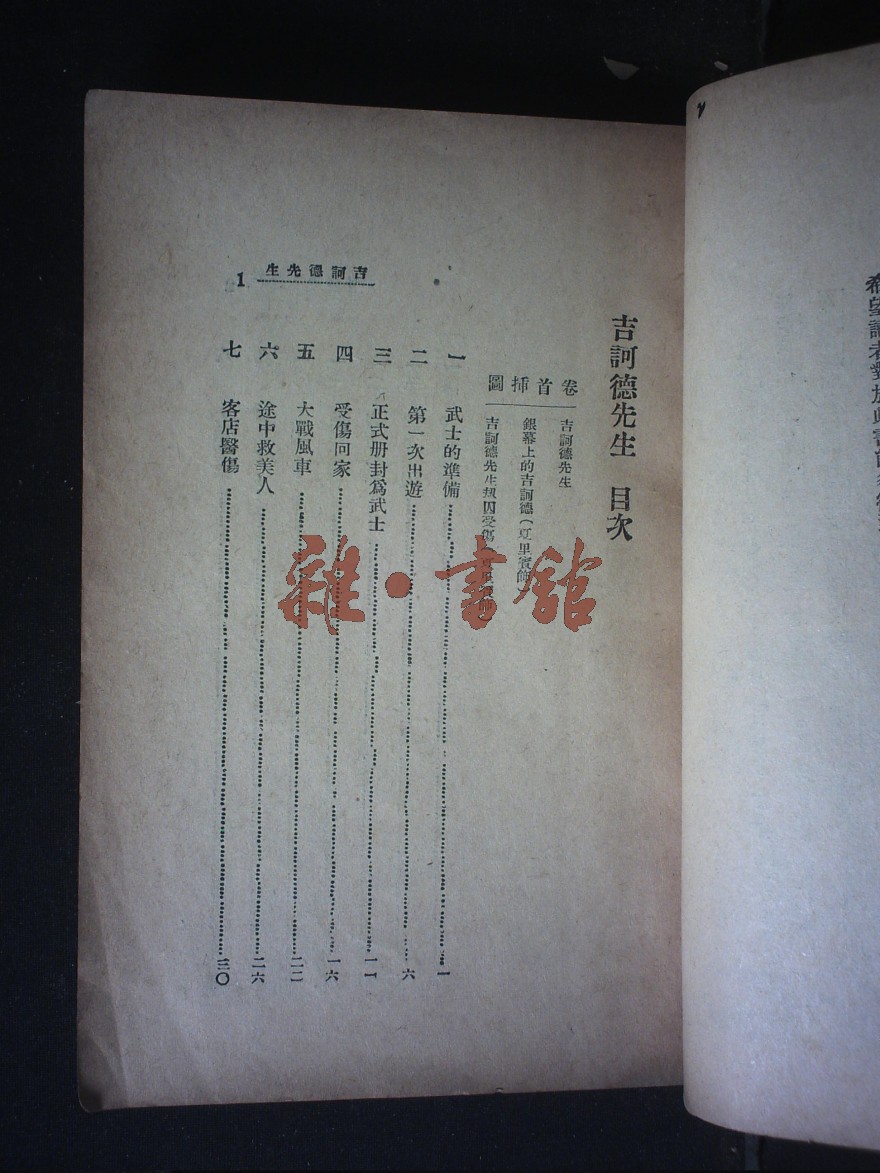 吉訶德先生 目次
卷首插圖
吉訶德先生
銀幕上的吉訶德(夏里賓飾)
吉訶德先生
一 武士的準備 一
二 第一次出遊 六
三 正式册封爲武士 一一
四 受傷回家 一六
五 大戰風車 二二
六 途中救美人 二六
七 客店醫傷 三〇
吉訶德先生
1
雜·書館